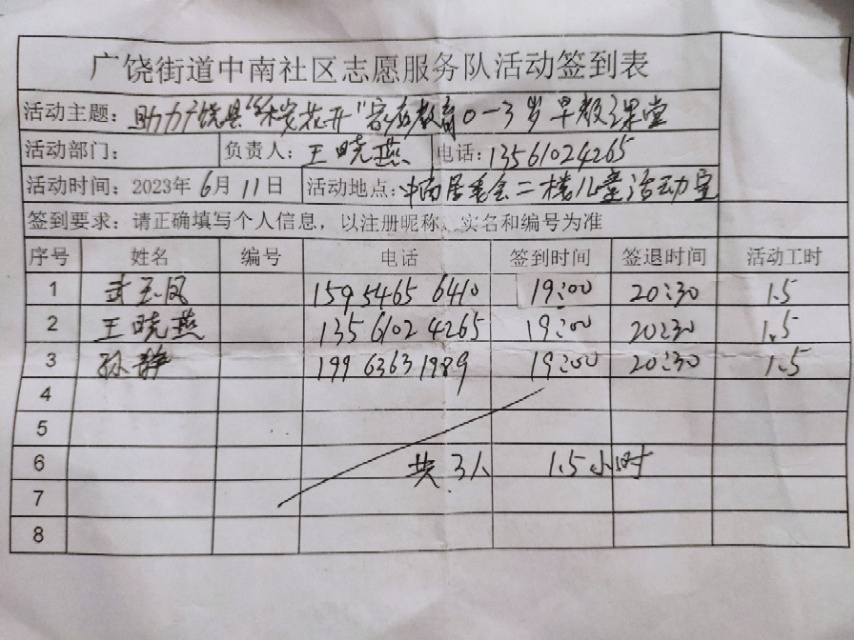 广饶街道中南社区志愿服务队活动签到表
活动主题: 助力广饶县"花开"家庭教育0-3岁早教课堂
活动部门: 负责人: 王晓燕 电话: 13561024265
活动时间: 2023年 6月 11日 活动地点: 中南居委会二楼儿童活动室
签到要求: 请正确填写个人信息, 以注册昵称、实名和编号为准
序号 姓名 编号 电话 签到时间 签退时间 活动工时
1 武玉凤 159 5465 6410 19:00 20:30 1.5
2 王晓燕 135 6102 4265 19:00 20:30 1.5
3 孙静 199 6363 1989 19:00 20:30 1.5
4
5
6 共3人 1.5小时
7
8